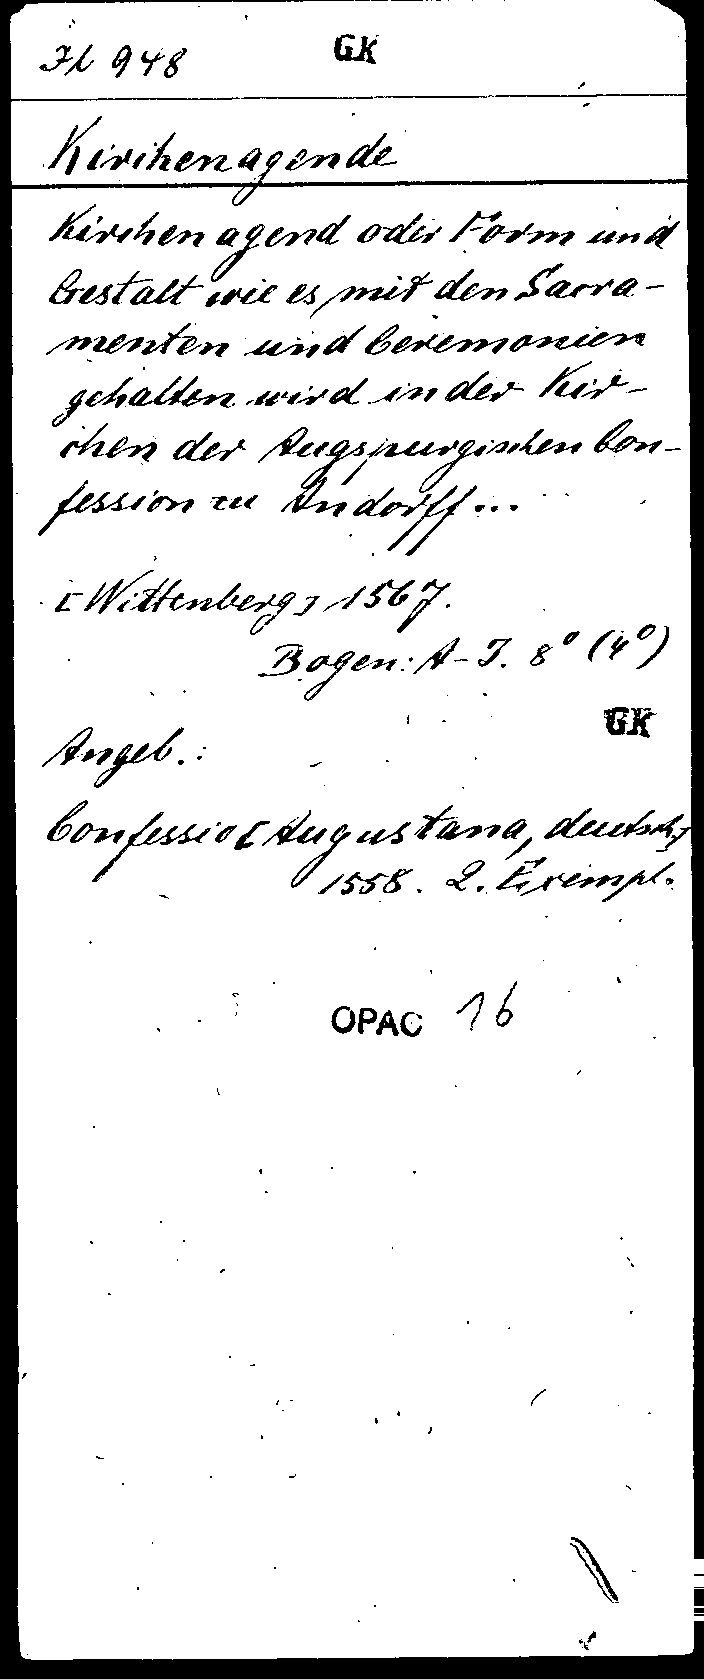 Il 948 GK
Kirchenagende
Kirchenagend oder Form und
Gestalt wie es mit den Sacra-
menten und Ceremonien
gehalten wird in der Kir-
chen der Augspurgischen Con-
fession zu Andorff...
[Wittenberg] 1567.
Bogen: A-J. 8° (4°)
GK
Angeb.:
Confessio [Augustana, deutsch]
1558. 2. Exempl.
OPAC 16